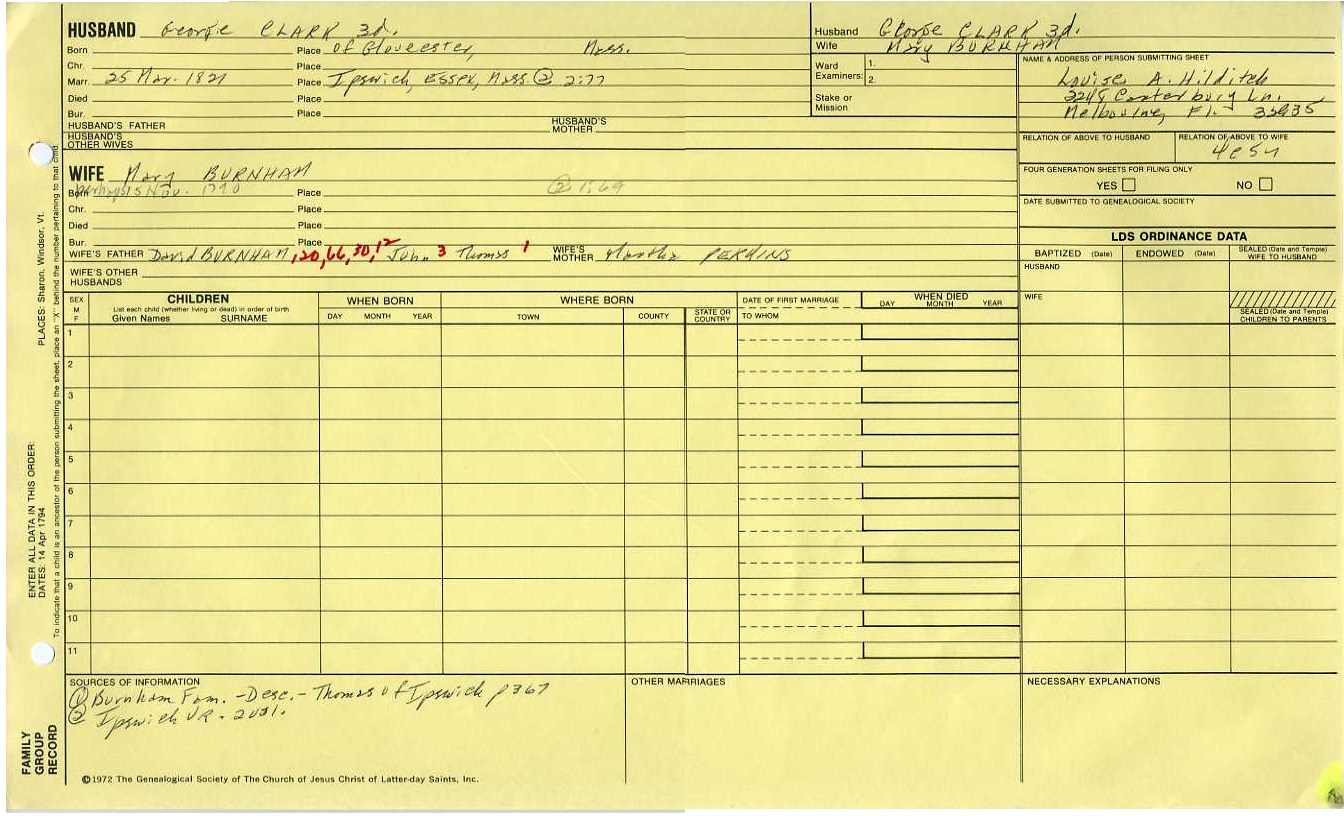 HUSBAND George CLARK 3d.
Born Place of Gloucester, Mass.
Chr. Place
Marr. 25 Mar. 1821 Place Ipswich, Essex, Mass. @ 2:77
Died Place
Bur. Place
HUSBAND'S FATHER HUSBAND'S MOTHER
HUSBAND'S OTHER WIVES
Husband George CLARK 3d.
Wife Mary BURNHAM
Ward Examiners: 1. 2.
Stake or Mission
NAME & ADDRESS OF PERSON SUBMITTING SHEET
Louise A. Hilditch
Canterbury Ln.
Melbourne, Fl.
RELATION OF ABOVE TO HUSBAND RELATION OF ABOVE TO WIFE
FOUR GENERATION SHEETS FOR FILING ONLY
YES NO
DATE SUBMITTED TO GENEALOGICAL SOCIETY
WIFE Mary BURNHAM
Born Perhaps 15 Nov. 1790 Place @ 1:69
Chr. Place
Died Place
Bur. Place
WIFE'S FATHER David BURNHAM, 120, 66, 30, 12 John 3 Thomas 1 WIFE'S MOTHER Martha PERKINS
WIFE'S OTHER HUSBANDS
LDS ORDINANCE DATA
BAPTIZED (Date) ENDOWED (Date) SEALED (Date and Temple) WIFE TO HUSBAND
HUSBAND
WIFE
SEALED (Date and Temple) CHILDREN TO PARENTS
SEX M F
CHILDREN
List each child (whether living or dead) in order of birth
Given Names SURNAME
WHEN BORN
DAY MONTH YEAR
WHERE BORN
TOWN COUNTY STATE OR COUNTRY
DATE OF FIRST MARRIAGE
TO WHOM
WHEN DIED
DAY MONTH YEAR
1
2
3
4
5
6
7
8
9
10
11
SOURCES OF INFORMATION
① Burnham Fam. - Desc. - Thomas of Ipswich p 367
② Ipswich VR -
OTHER MARRIAGES
NECESSARY EXPLANATIONS
©1972 The Genealogical Society of The Church of Jesus Christ of Latter-day Saints, Inc.
FAMILY GROUP RECORD
ENTER ALL DATA IN THIS ORDER:
DATES: 14 Apr 1794 PLACES: Sharon, Windsor, Vt.
To indicate that a child is an ancestor of the person submitting the sheet, place an "X" behind the number pertaining to that child.